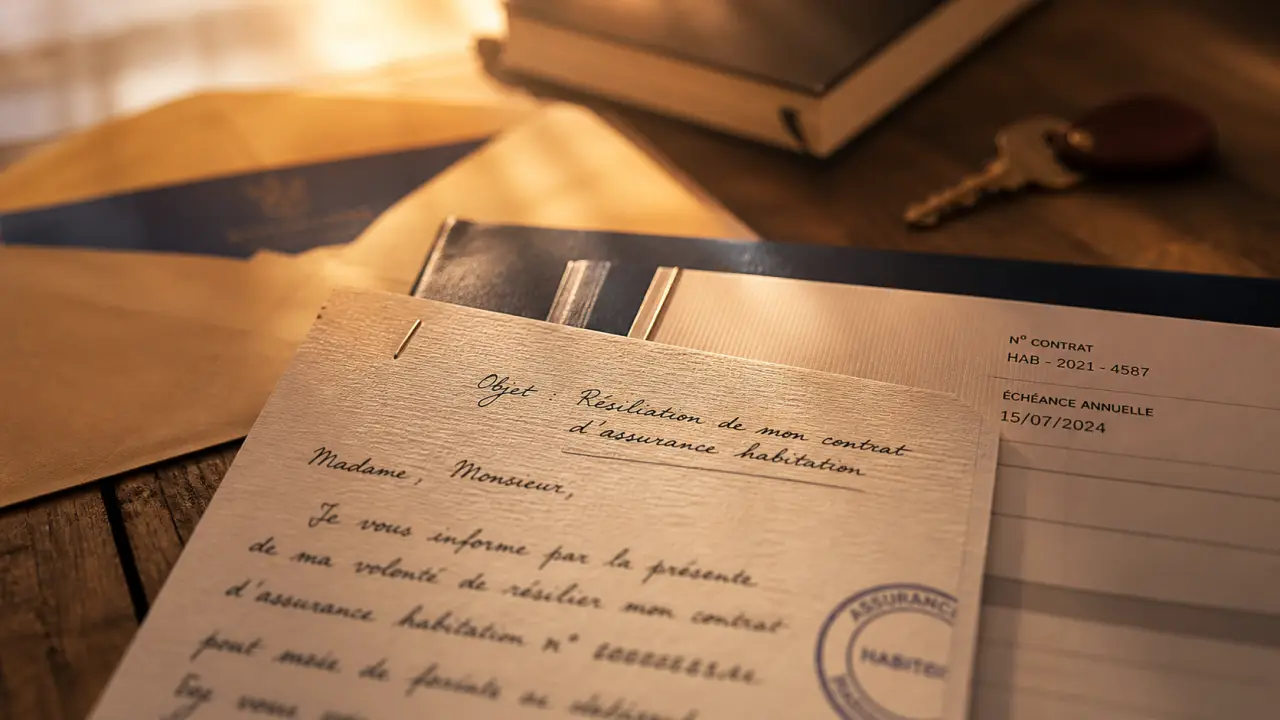 Objet : Résiliation de mon contrat
d'assurance habitation
Madame, Monsieur,
Je vous informe par la présente
de ma volonté de résilier mon contrat
d'assurance habitation n°
de
vous
ASSURANC
HABITO
N° CONTRAT
HAB - 2021 - 4587
ÉCHÉANCE ANNUELLE
15/07/2024